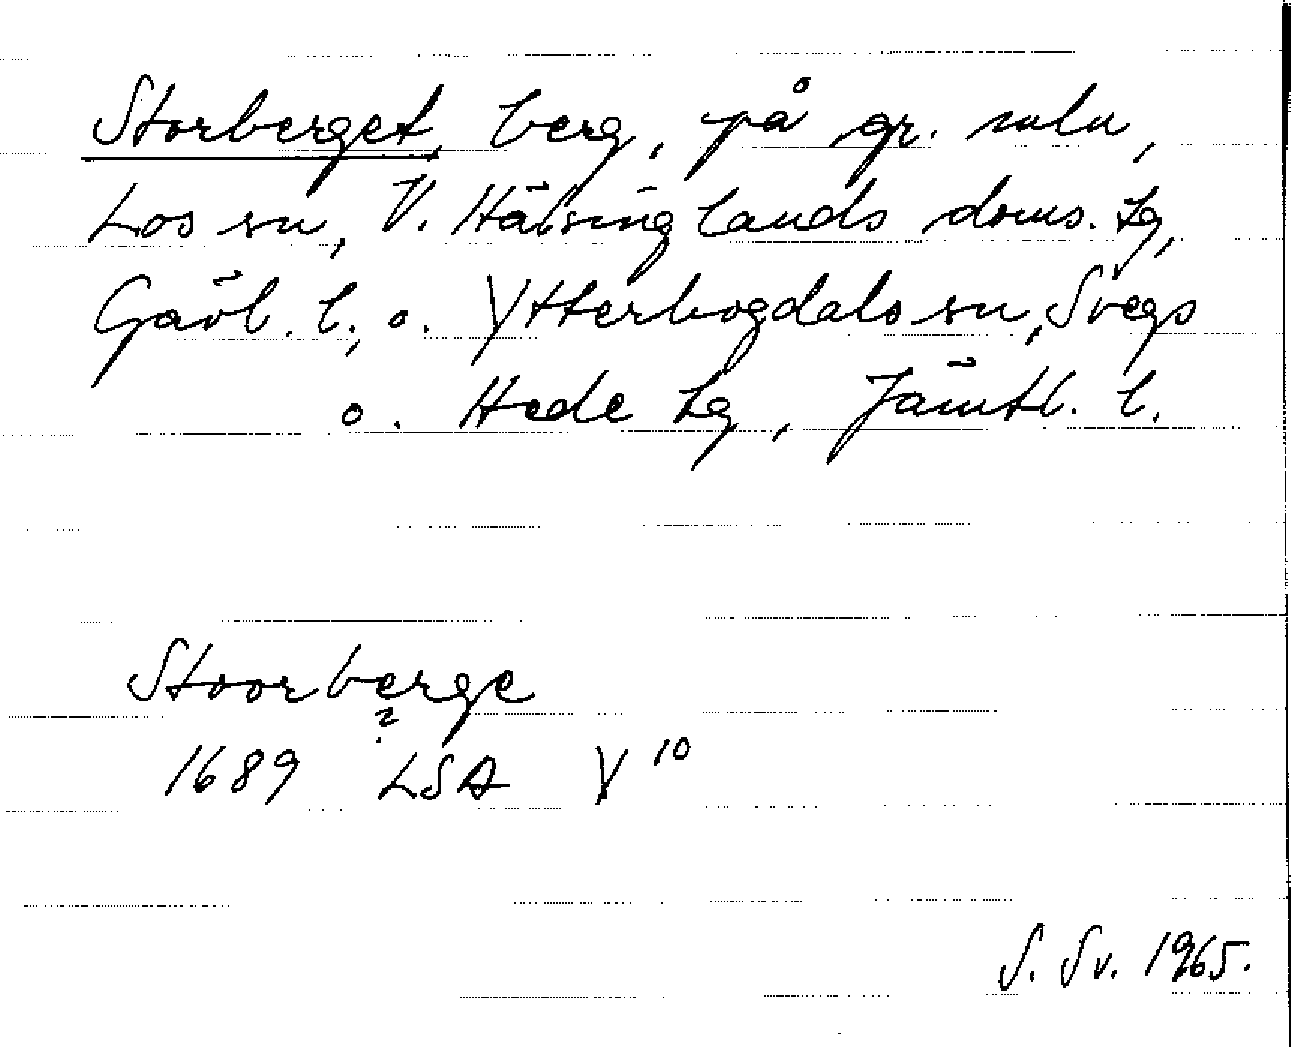 Storberget, berg, på gr. mln,
Los sn, V. Hälsinglands doms. tg,
Gävl. l., o. Ytterhogdals sn, Svegs
o. Hede tg, Jämtl. l.
Stoorberge
?
1689 LSA Y 10
S. Sv. 1965.